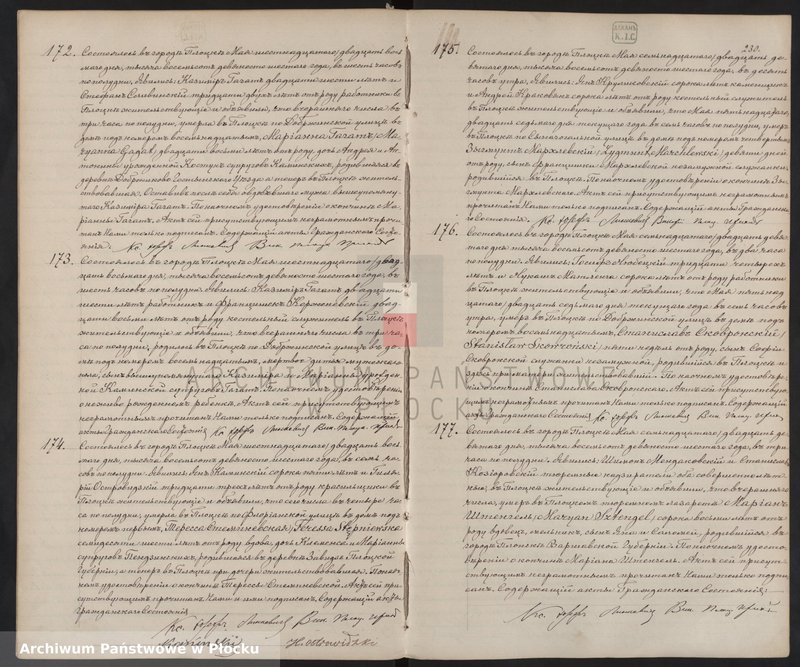 172. Состоялось въ городѣ Плоцкѣ Мая шестнадцатого/двадцать вось
маго дня, тысяча восемьсотъ девяносто шестаго года, въ шесть часовъ
по полудни. Явились Казимиръ Гагатъ двадцати шести лѣтъ и
тридцати двухъ лѣтъ отъ роду работники въ
Плоцкѣ жительствующіе и объявили, что вчерашняго числа въ
три часа по полудни, умерла въ Плоцкѣ по Добржинской улицѣ въ
домѣ подъ номеромъ восемнадцатымъ, Маріанна Гагатъ /Ma-
ryanna Gagat/, двадцати восьми лѣтъ отъ роду, дочь Андрея и Ан-
тонины урожденной супруговъ Каминскихъ, родившаяся въ
деревнѣ уѣзда а теперь въ Плоцкѣ житель-
ствовавшая. Оставивъ послѣ себя овдовѣвшаго мужа вышеупомяну-
таго Казиміра Гагатъ. По наочномъ удостовѣреніи о кончинѣ Ма-
ріанны Гагатъ, Актъ сей присутствующимъ неграмотнымъ прочи-
танъ Нами только подписанъ. Содержащій акты Гражданскаго Состо-
янія.
173. Состоялось въ городѣ Плоцкѣ Мая шестнадцатаго/двад-
цать восьмаго дня, тысяча восемьсотъ девяносто шестаго года, въ
шесть часовъ по полудни. Явились Казиміръ Гагатъ двадцати
шести лѣтъ работникъ и Францишекъ двад-
цати восьми лѣтъ отъ роду котельный служитель въ Плоцкѣ
жительствующіе и объявили, что вчерашняго числа въ три ча-
са по полудни, родилось въ Плоцкѣ по Добржинской улицѣ въ до-
мѣ подъ номеромъ восемнадцатымъ, мертвое дитя мужескаго
пола, сынъ вышеупомянутаго Казиміра и Маріанны урожден-
ной Каминской супруговъ Гагатъ. По наочномъ удостовѣреніи
о неживо рожденномъ ребенкѣ. Актъ сей присутствующимъ
неграмотнымъ прочитанъ Нами только подписанъ. Содержащій
акты Гражданскаго Состоянія
174. Состоялось въ городѣ Плоцкѣ Мая шестнадцатаго/двадцать вось-
маго дня, тысяча восемьсотъ девяносто шестаго года, въ семь ча-
совъ по полудни. Явились Янъ Каминскій сорока пяти лѣтъ и
Островидзкій тридцати трехъ лѣтъ отъ роду красильщики въ
Плоцкѣ жительствующіе и объявили, что сего числа въ четыре ча-
са по полудни, умерла въ Плоцкѣ по Флоріанской улицѣ въ домѣ подъ
номеромъ первымъ, Тереса /Teressa
семидесяти шести лѣтъ отъ роду вдова, дочь и Маріанны
супруговъ родившаяся въ деревнѣ Плоцкой
губерніи, а теперь въ Плоцкѣ при дочери жительствовавшая. По наоч-
номъ удостовѣреніи о кончинѣ Тересы Актъ сей при-
сутствующимъ прочитанъ Нами и ими подписанъ. Содержащій акты
Гражданскаго Состоянія
H. Ostrowidzki
230.
175. Состоялось въ городѣ Плоцкѣ Мая семнадцатаго/двадцать де-
вятаго дня, тысяча восемьсотъ девяносто шестаго года, въ десять
часовъ утра, Явились Янъ сорока лѣтъ каменщикъ
и Андрей сорока лѣтъ отъ роду котельный служитель
въ Плоцкѣ жительствующіе и объявили, что Мая пятнадцатаго/
двадцать седьмаго дня текущаго года въ часовъ по полудни, умеръ
въ Плоцкѣ по Синагогальной улицѣ въ домѣ подъ номеромъ четвертымъ
Зыгмунтъ Мархлевскій /Zygmunt Marchlewski/ девяти дней
отъ роду, сынъ Францишки Мархлевской незамужней служанки,
родившійся въ Плоцкѣ. По наочномъ удостовѣреніи о кончинѣ Зы-
гмунта Мархлевскаго. Актъ сей присутствующимъ неграмотнымъ
прочитанъ Нами только подписанъ. Содержащій акты Гражданска-
го Состоянія.
176. Состоялось въ городѣ Плоцкѣ Мая семнадцатаго/двадцать девя-
таго дня тысяча восемьсотъ девяносто шестаго года, въ два часа
по полудни. Явились Петръ тридцати четырехъ
лѣтъ и сорока лѣтъ отъ роду работники
въ Плоцкѣ жительствующіе и объявили, что Мая пятнад-
цатаго/двадцать седьмаго дня текущаго года въ семь часовъ
утра, умеръ въ Плоцкѣ по Добржинской улицѣ въ домѣ подъ
номеромъ восемнадцатымъ, Станиславъ Сковронскій /
Stanisław Skowroński/ пяти недѣль отъ роду, сынъ Софіи
Сковронской служанки незамужней, родившійся въ Плоцкѣ и
здѣсь при матери жительствовавшій. По наочномъ удостовѣре-
ніи о кончинѣ Станислава Сковронскаго. Актъ сей присутствую-
щимъ неграмотнымъ прочитанъ Нами только подписанъ. Содержащій
акты Гражданскаго Состоянія
177. Состоялось въ городѣ Плоцкѣ Мая семнадцатаго/двадцать де-
вятаго дня, тысяча восемьсотъ девяносто шестаго года, въ три
часа по полудни. Явились Шимонъ и Станиславъ
тюремные надзиратели оба совершеннолѣт-
ніе, въ Плоцкѣ жительствующіе и объявили, что вчерашняго
числа, умеръ въ Плоцкомъ тюремномъ лазаретѣ Маріанъ
Штенгель /Maryan Sztengel/ сорока восьми лѣтъ отъ
роду вдовецъ, сынъ Яна и Саломеи, родившійся въ
городѣ Варшавской Губерніи. По наочномъ удосто-
вѣреніи о кончинѣ Маріана Штенгеля. Актъ сей присут-
ствующимъ неграмотнымъ прочитанъ Нами только подпи-
санъ. Содержащій акты Гражданскаго Состоянія:
ARCHIWUM PAŃSTWOWE
W PŁOCKU
Archiwum Państwowe w Płocku